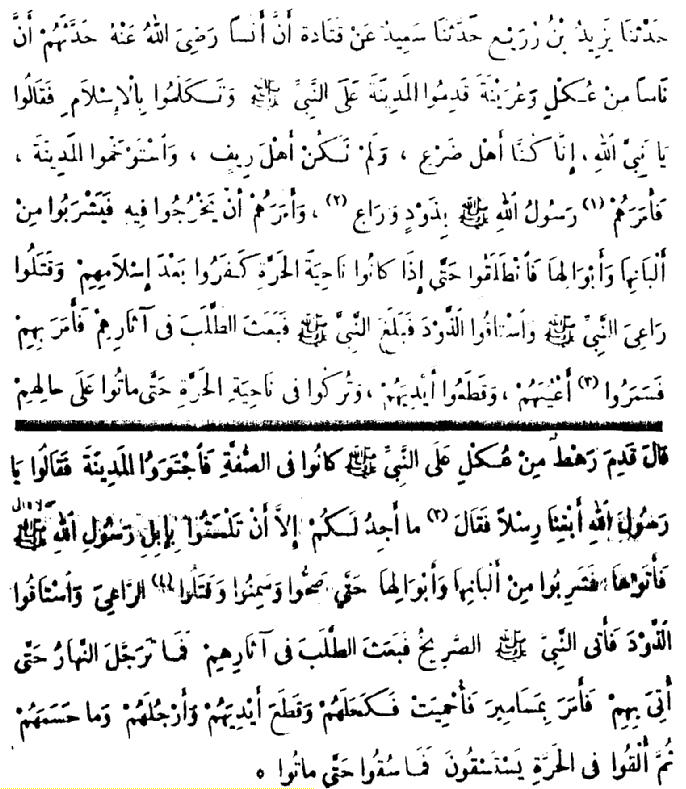 حَدَّثَنَا يَزِيدُ بْنُ زُرَيْعٍ حَدَّثَنَا سَعِيدٌ عَنْ قَتَادَةَ أَنَّ أَنَسًا رَضِيَ اللهُ عَنْهُ حَدَّثَهُمْ أَنَّ
نَاسًا مِنْ عُكْلٍ وَعُرَيْنَةَ قَدِمُوا الْمَدِينَةَ عَلَى النَّبِيِّ ﷺ وَتَكَلَّمُوا بِالْإِسْلَامِ فَقَالُوا
يَا نَبِيَّ اللهِ ، إِنَّا كُنَّا أَهْلَ ضَرْعٍ ، وَلَمْ نَكُنْ أَهْلَ رِيفٍ ، وَاسْتَوْخَمُوا الْمَدِينَةَ ،
فَأَمَرَهُمْ (١) رَسُولُ اللهِ ﷺ بِذَوْدٍ وَرَاعٍ (٢) ، وَأَمَرَهُمْ أَنْ يَخْرُجُوا فِيهِ فَيَشْرَبُوا مِنْ
أَلْبَانِهَا وَأَبْوَالِهَا فَانْطَلَقُوا حَتَّى إِذَا كَانُوا نَاحِيَةَ الْحَرَّةِ كَفَرُوا بَعْدَ إِسْلَامِهِمْ وَقَتَلُوا
رَاعِيَ النَّبِيِّ ﷺ وَاسْتَاقُوا الذَّوْدَ فَبَلَغَ النَّبِيَّ ﷺ فَبَعَثَ الطَّلَبَ فى آثَارِهِمْ فَأَمَرَ بِهِمْ
فَسَمَرُوا (٣) أَعْيُنَهُمْ ، وَقَطَعُوا أَيْدِيَهُمْ ، وَتُرِكُوا فى نَاحِيَةِ الْحَرَّةِ حَتَّى مَاتُوا عَلَى حَالِهِمْ
قَالَ قَدِمَ رَهْطٌ مِنْ عُكْلٍ عَلَى النَّبِيِّ ﷺ كَانُوا فى الصُّفَّةِ فَاجْتَوَوُا الْمَدِينَةَ فَقَالُوا يَا
رَسُولَ اللهِ أَبْغِنَا رِسْلًا فَقَالَ (٣) مَا أَجِدُ لَكُمْ إِلَّا أَنْ تَلْحَقُوا بِإِبِلِ رَسُولِ اللهِ ﷺ
فَأَتَوْهَا فَشَرِبُوا مِنْ أَلْبَانِهَا وَأَبْوَالِهَا حَتَّى صَحُّوا وَسَمِنُوا وَقَتَلُوا (٤) الرَّاعِيَ وَاسْتَاقُوا
الذَّوْدَ فَأَتَى النَّبِيَّ ﷺ الصَّرِيخُ فَبَعَثَ الطَّلَبَ فى آثَارِهِمْ فَمَا تَرَجَّلَ النَّهَارُ حَتَّى
أُتِيَ بِهِمْ فَأَمَرَ بِمَسَامِيرَ فَأُحْمِيَتْ فَكَحَلَهُمْ وَقَطَعَ أَيْدِيَهُمْ وَأَرْجُلَهُمْ وَمَا حَسَمَهُمْ
ثُمَّ أُلْقُوا فى الْحَرَّةِ يَسْتَسْقُونَ فَمَا سُقُوا حَتَّى مَاتُوا ه